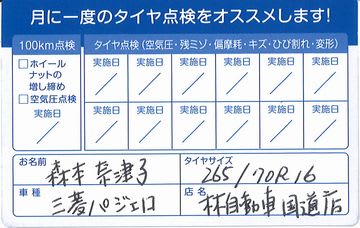 月に一度のタイヤ点検をオススメします!
100km点検
タイヤ点検(空気圧・残ミゾ・偏摩耗・キズ・ひび割れ・変形)
□ホイール
ナットの
増し締め
□空気圧点検
実施日
/
実施日 実施日 実施日 実施日 実施日 実施日
/ / / / / /
実施日 実施日 実施日 実施日 実施日 実施日
/ / / / / /
お名前 森本奈津子
タイヤサイズ 265/70R16
車種 三菱パジェロ
店名 林自動車国道店